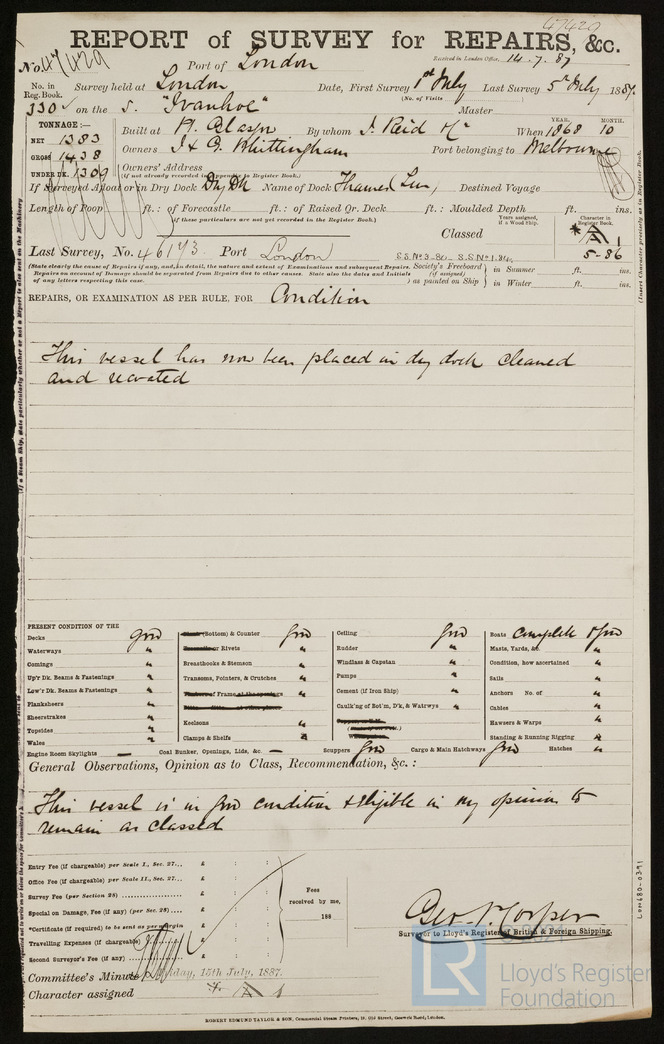 47420
REPORT of SURVEY for REPAIRS, &c.
No. 47429 Port of London Received in London Office, 14.7.87
No. in Reg. Book. Survey held at London Date, First Survey 1st July Last Survey 5th July 1887
330 on the S. "Ivanhoe" (No. of Visits ) Master
TONNAGE:— Built at Pt. Glasgow By whom J. Reid & Co When 1868 YEAR. 10 MONTH.
NET 1383 Owners J & G Whittingham Port belonging to Melbourne
GROSS 1438 Owners' Address
UNDER DK. 1309 (If not already recorded in Appendix to Register Book.)
If Surveyed Afloat or in Dry Dock Dry Dk Name of Dock Thames Destined Voyage
Length of Poop ft.: of Forecastle ft.: of Raised Qr. Deck ft.: Moulded Depth ft. ins.
(If these particulars are not yet recorded in the Register Book.)
Years assigned, if a Wood Ship. Character in Register Book.
Classed A 1
Last Survey, No. 46173 Port London S.S.No3-80 S.S.No1.84 5-86
(State clearly the cause of Repairs if any, and, in detail, the nature and extent of Examinations and subsequent Repairs. Society's Freeboard in Summer ft. ins.
Repairs on account of Damage should be separated from Repairs due to other causes. State also the dates and Initials (if assigned)
of any letters respecting this case. as painted on Ship in Winter ft. ins.
REPAIRS, OR EXAMINATION AS PER RULE, FOR Condition
This vessel has now been placed in dry dock cleaned
and recoated
PRESENT CONDITION OF THE
Decks good (Bottom) & Counter good Ceiling good Boats complete & good
Waterways " or Rivets " Rudder " Masts, Yards, &c. "
Comings " Breasthooks & Stemson " Windlass & Capstan " Condition, how ascertained "
Up'r Dk. Beams & Fastenings " Transoms, Pointers, & Crutches " Pumps " Sails "
Low'r Dk. Beams & Fastenings " Timbers of Frame at the openings Cement (if Iron Ship) " Anchors No. of "
Planksheers " Caulk'ng of Bot'm, D'k, & Watrwys " Cables "
Sheerstrakes " Keelsons " Hawsers & Warps "
Topsides " Clamps & Shelfs " Standing & Running Rigging "
Wales "
Engine Room Skylights — Coal Bunker, Openings, Lids, &c. — Scuppers good Cargo & Main Hatchways good Hatches "
General Observations, Opinion as to Class, Recommendation, &c.:
This vessel is in good condition & eligible in my opinion to
remain as classed
Entry Fee (if chargeable) per Scale I., Sec. 27... £ : :
Office Fee (if chargeable) per Scale II., Sec. 27... £ : :
Survey Fee (per Section 28) £ : :
Special on Damage, Fee (if any) (per Sec. 28) £ : :
*Certificate (if required) to be sent as per margin
Travelling Expenses (if chargeable) £ : :
Second Surveyor's Fee (if any) £ : :
Fees received by me, 188
Surveyor to Lloyd's Register of British & Foreign Shipping.
Committee's Minute day, 15th July, 1887.
Character assigned A 1
ROBERT EDMUND TAYLOR & SON, Commercial Steam Printers, 19, Old Street, Goswell Road, London.
(Insert Character precisely as in Register Book.)
LON680-0391
LR
Lloyd's Register
Foundation